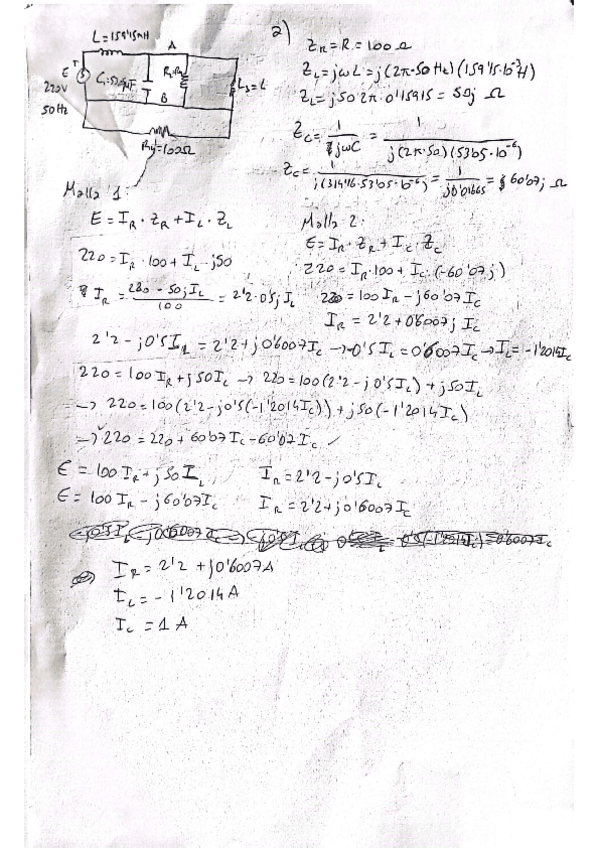 L = 159'15mH
A
E
220V
50Hz
B
L₃=L
R₄=100Ω
2)
Z_R = R = 100 Ω
Z_L = jωL = j(2π·50 Hz)(159'15·10⁻³H)
Z_L = j50·2π·0'15915 = 50j Ω
Z_C = 1/(jωC) = 1/(j(2π·50)(53'05·10⁻⁶)
Z_C = 1/(j(314'16·53'05·10⁻⁶) = 1/(j0'01665) = 60'07j Ω
Malla 1:
E = I_R · Z_R + I_L · Z_L
220 = I_R · 100 + I_L · j50
I_R = (220 - 50jI_L)/100 = 2'2·0'5j I_L
Malla 2:
E = I_R · Z_R + I_C · Z_C
220 = I_R·100 + I_C · (-60'07j)
220 = 100I_R - j60'07I_C
I_R = 2'2 + 0'6007j I_C
2'2 - j0'5I_R = 2'2 + j0'6007I_C → -0'5I_L = 0'6007I_C → I_L = -1'2014I_C
220 = 100I_R + j50I_L → 220 = 100(2'2 - j0'5I_L) + j50I_L
→ 220 = 100(2'2 - j0'5(-1'2014I_C)) + j50(-1'2014I_C)
→ 220 = 220 + 60'07I_C - 60'07I_C ✓
E = 100I_R + j50I_L I_R = 2'2 - j0'5I_L
E = 100I_R - j60'07I_C I_R = 2'2 + j0'6007I_C
I_R = 2'2 + j0'6007A
I_L = -1'2014A
I_C = 1A